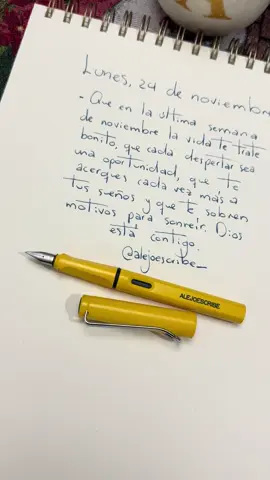 Lunes, 24 de noviembre
- Que en la ultima semana
de noviembre la vida te trate
bonito, que cada despertar sea
una oportunidad, que te
acerques cada vez más a
tus sueños y que te sobren
motivos para sonreír. Dios
está contigo.
@alejoescribe_
ALEJOESCRIBE